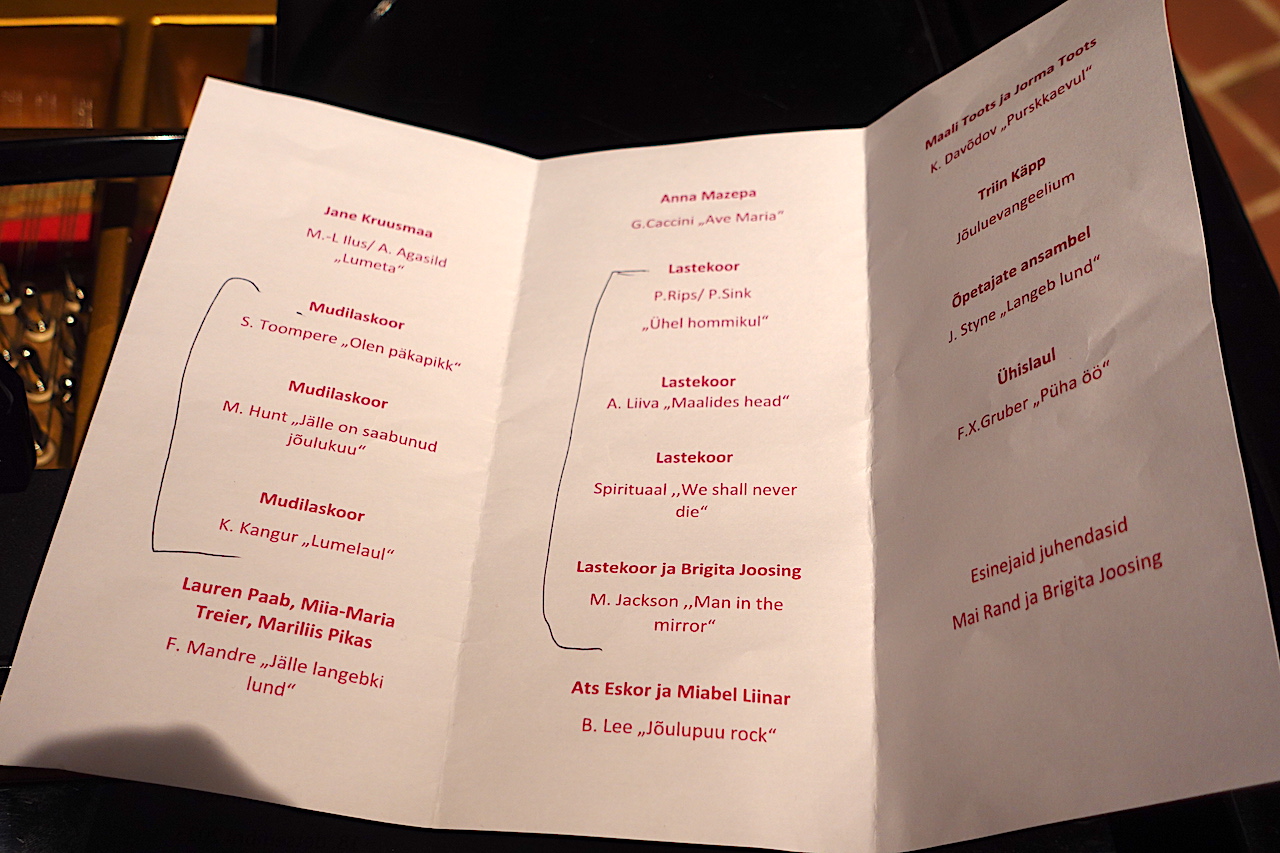 Jane Kruusmaa
M.-L Ilus/ A. Agasild
„Lumeta“
Mudilaskoor
S. Toompere „Olen päkapikk“
Mudilaskoor
M. Hunt „Jälle on saabunud
jõulukuu“
Mudilaskoor
K. Kangur „Lumelaul“
Lauren Paab, Miia-Maria
Treier, Mariliis Pikas
F. Mandre „Jälle langebki
lund“
Anna Mazepa
G.Caccini „Ave Maria“
Lastekoor
P.Rips/ P.Sink
„Ühel hommikul“
Lastekoor
A. Liiva „Maalides head“
Lastekoor
Spirituaal ,,We shall never
die“
Lastekoor ja Brigita Joosing
M. Jackson ,,Man in the
mirror“
Ats Eskor ja Miabel Liinar
B. Lee „Jõulupuu rock“
Maali Toots ja Jorma Toots
K. Davõdov „Purskkaevul“
Triin Käpp
Jõuluevangeelium
Õpetajate ansambel
J. Styne „Langeb lund“
Ühislaul
F.X.Gruber „Püha öö“
Esinejaid juhendasid
Mai Rand ja Brigita Joosing